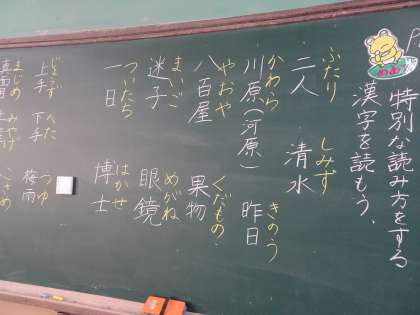 特別な読み方をする
漢字を読もう。
ふたり しみず
二人 清水
かわら きのう
川原(河原) 昨日
やおや くだもの
八百屋 果物
まいご めがね
迷子 眼鏡
ついたち はかせ
一日 博士
じょうず へた つゆ
上手 下手 梅雨
まじめ みやげ
真面目